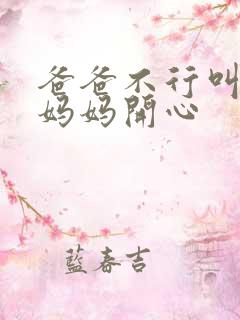 爸爸不行叫
妈妈開心
藍春吉